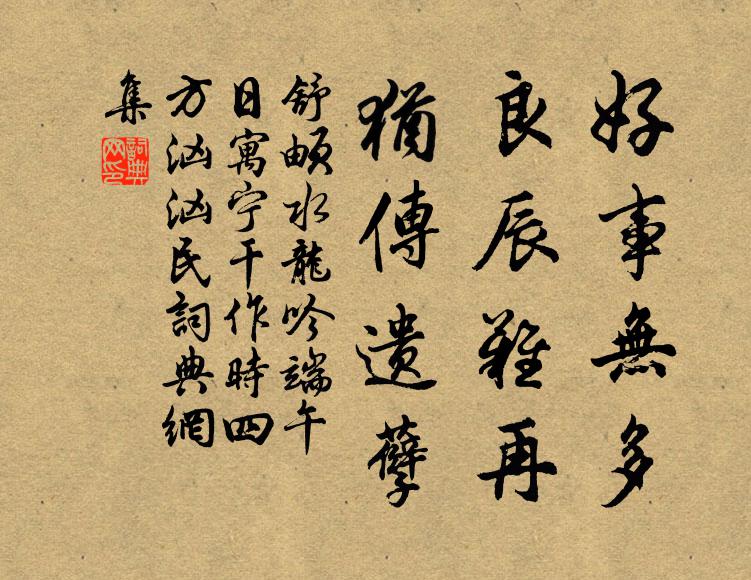 好事無多
良辰難再
猶傳遺孽
舒頔水龍吟端午
日寓宁干作時四
方汹汹民詞典網
集
詞典网印